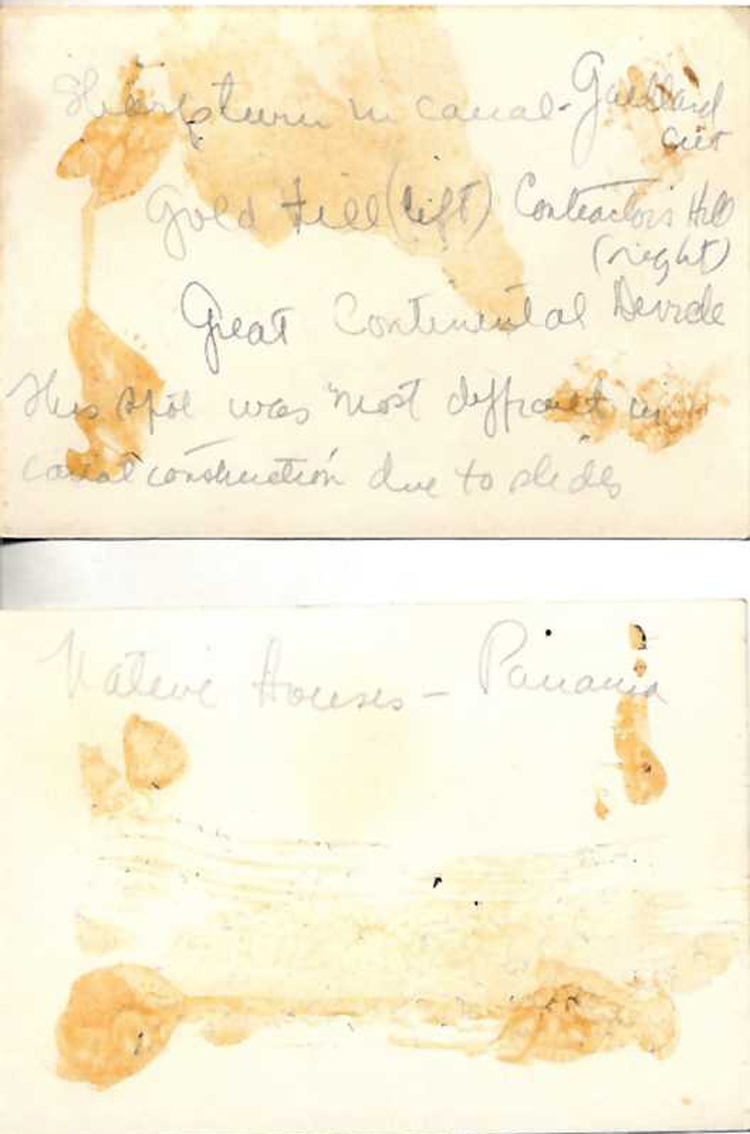 Sharp turn in canal - Gaillard
cut
Gold Hill (left) Contractors Hill
(right)
Great Continental Devide
This spot was most difficult in
canal construction due to slides
Native Houses - Panama